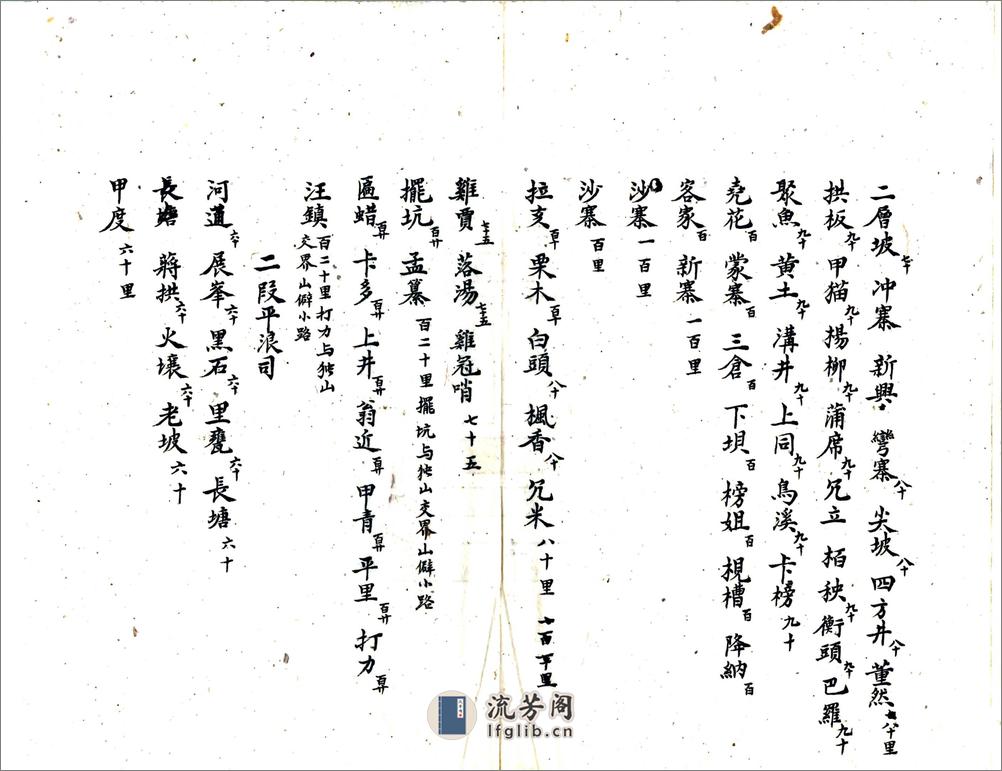 二層坡七十 冲寨 新興 彎寨八十 尖坡八十 四方井八十 董然八十里
拱板九十 甲猫九十 揚柳九十 蒲席九十 兄立 栢秧九十 衡頭九十 巴羅九十
聚魚九十 黄土九十 溝井九十 上同九十 鳥溪九十 卡榜九十
堯花百 蒙寨百 三倉百 下垻百 榜姐百 梘槽百 降納百
客家百 新寨一百里
沙寨一百里
沙寨百里
拉支 栗木 白頭八十 楓香八十 兄米八十里
雞賈七十五 落湯七十五 雞冠哨七十五
擺坑百廿 孟纂百二十里擺坑与独山交界山僻小路
匾蜡百廿 卡多百廿 上井百廿 翁近百廿 甲青百廿 平里百廿 打力百廿
汪鎮百二十里打力与独山
交界山僻小路
二段平浪司
河道六十 展峯六十 黑石六十 里甕六十 長塘六十
長塘 蔣拱六十 火壤六十 老坡六十
甲度六十里
流芳阁
lfglib.cn